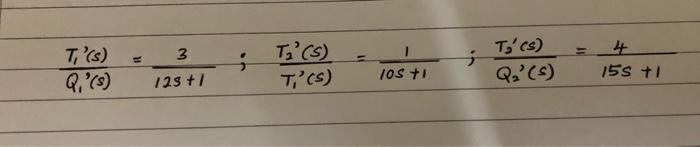 T₁'(s)/Q₁'(s) = 3/(12s+1) ; T₂'(s)/T₁'(s) = 1/(10s+1) ; T₂'(s)/Q₂'(s) = 4/(15s+1)